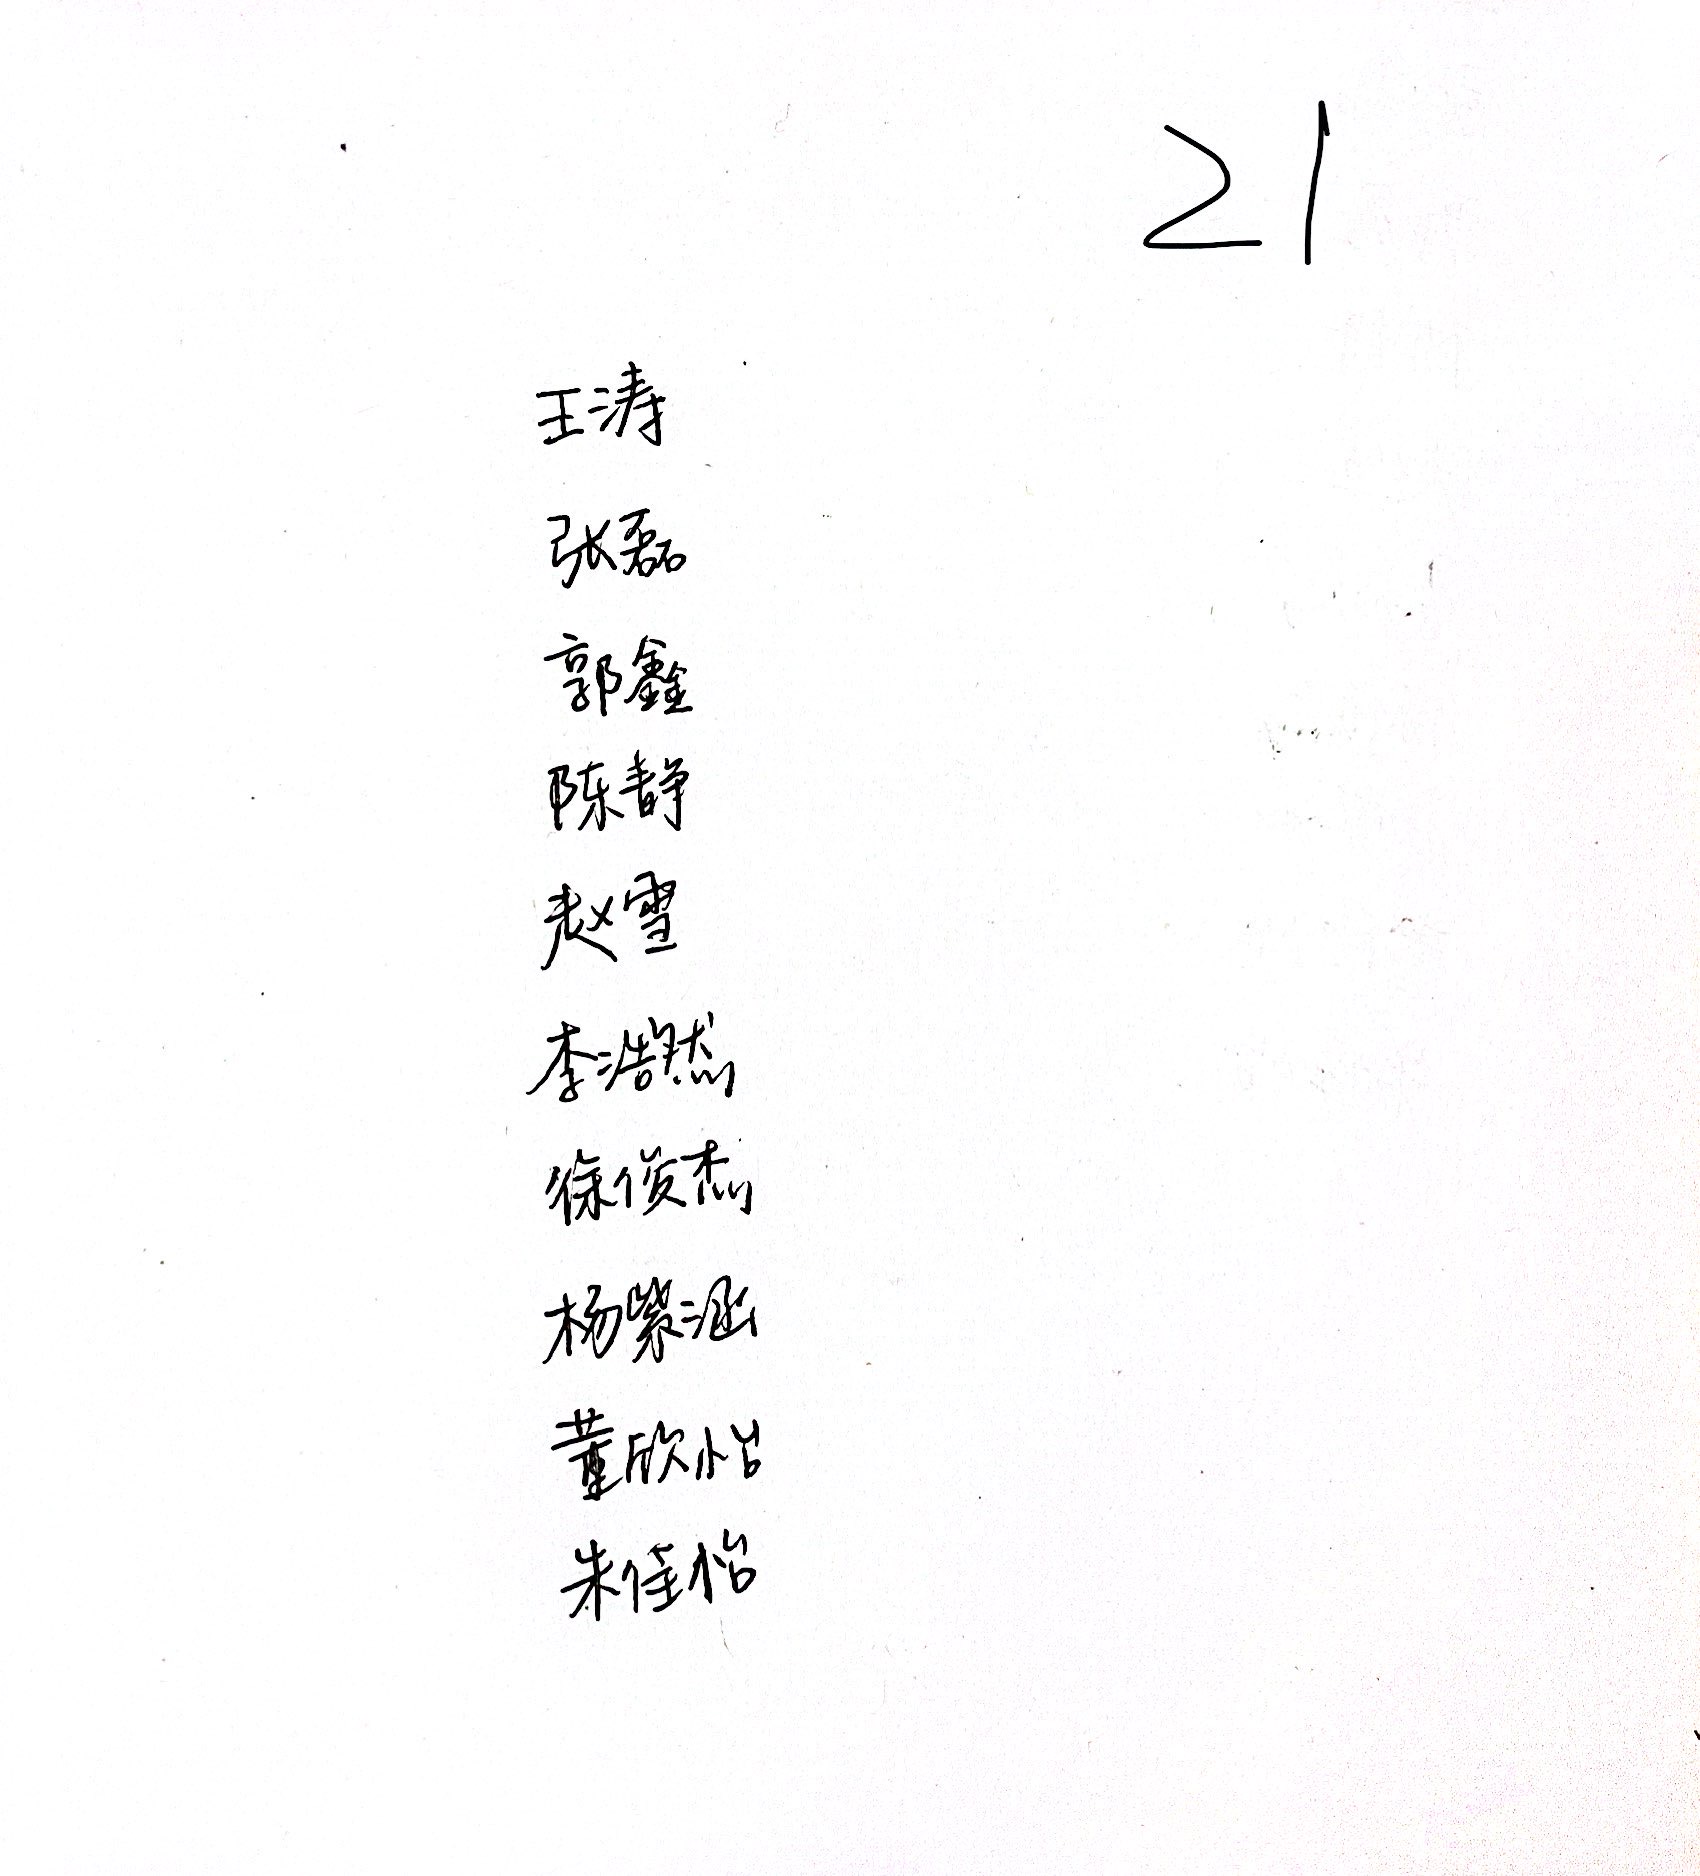 21
王涛
张磊
郭鑫
陈静
赵雪
李浩然
徐俊杰
杨紫涵
董欣怡
朱佳怡